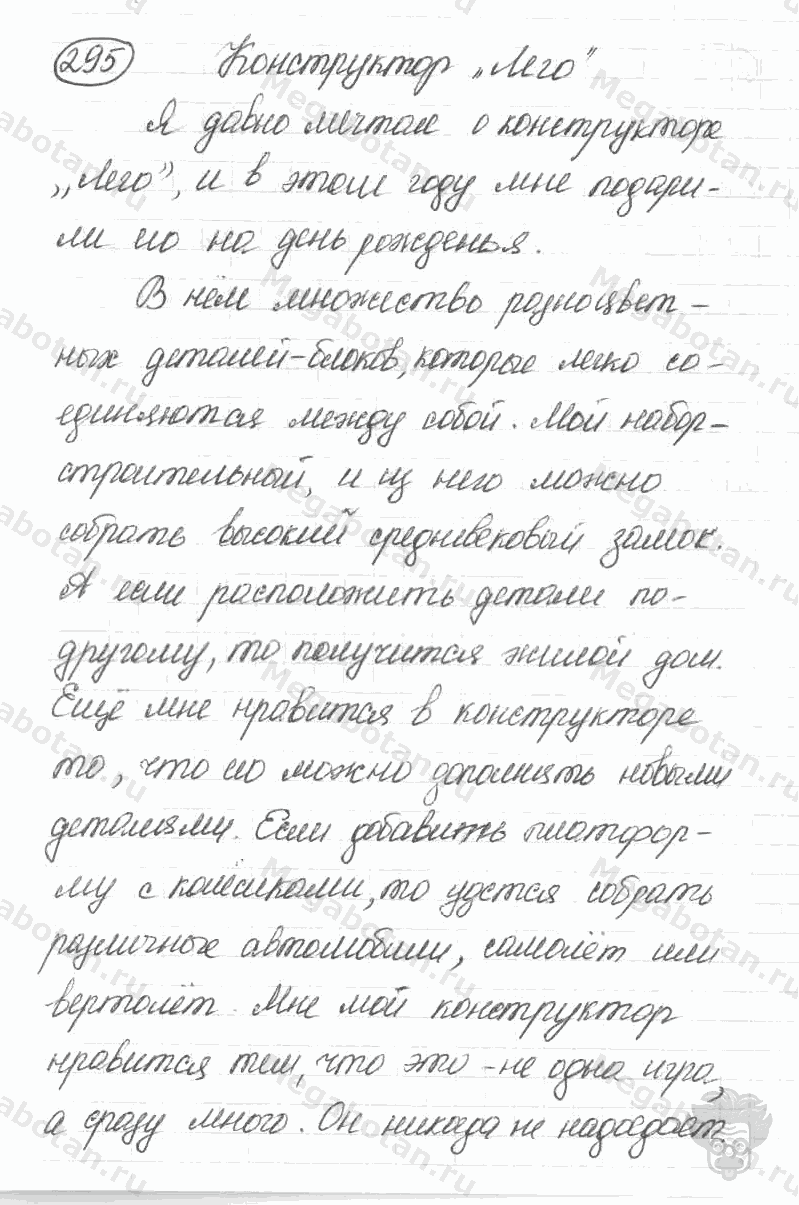 295 Конструктор „Лего"
Я давно мечтал о конструкторе
„Лего", и в этом году мне подари-
ли его на день рожденья.
В нём множество разноцвет-
ных деталей-блоков, которые легко со-
единяются между собой. Мой набор-
строительный, и из него можно
собрать высокий средневековый замок.
А если расположить детали по-
другому, то получится жилой дом.
Ещё мне нравится в конструкторе
то, что его можно дополнять новыми
деталями. Если добавить платфор-
му с колёсиками, то удастся собрать
различные автомобили, самолёт или
вертолёт. Мне мой конструктор
нравится тем, что это - не одна игра,
а сразу много. Он никогда не надоедает.
Megabotan.ru